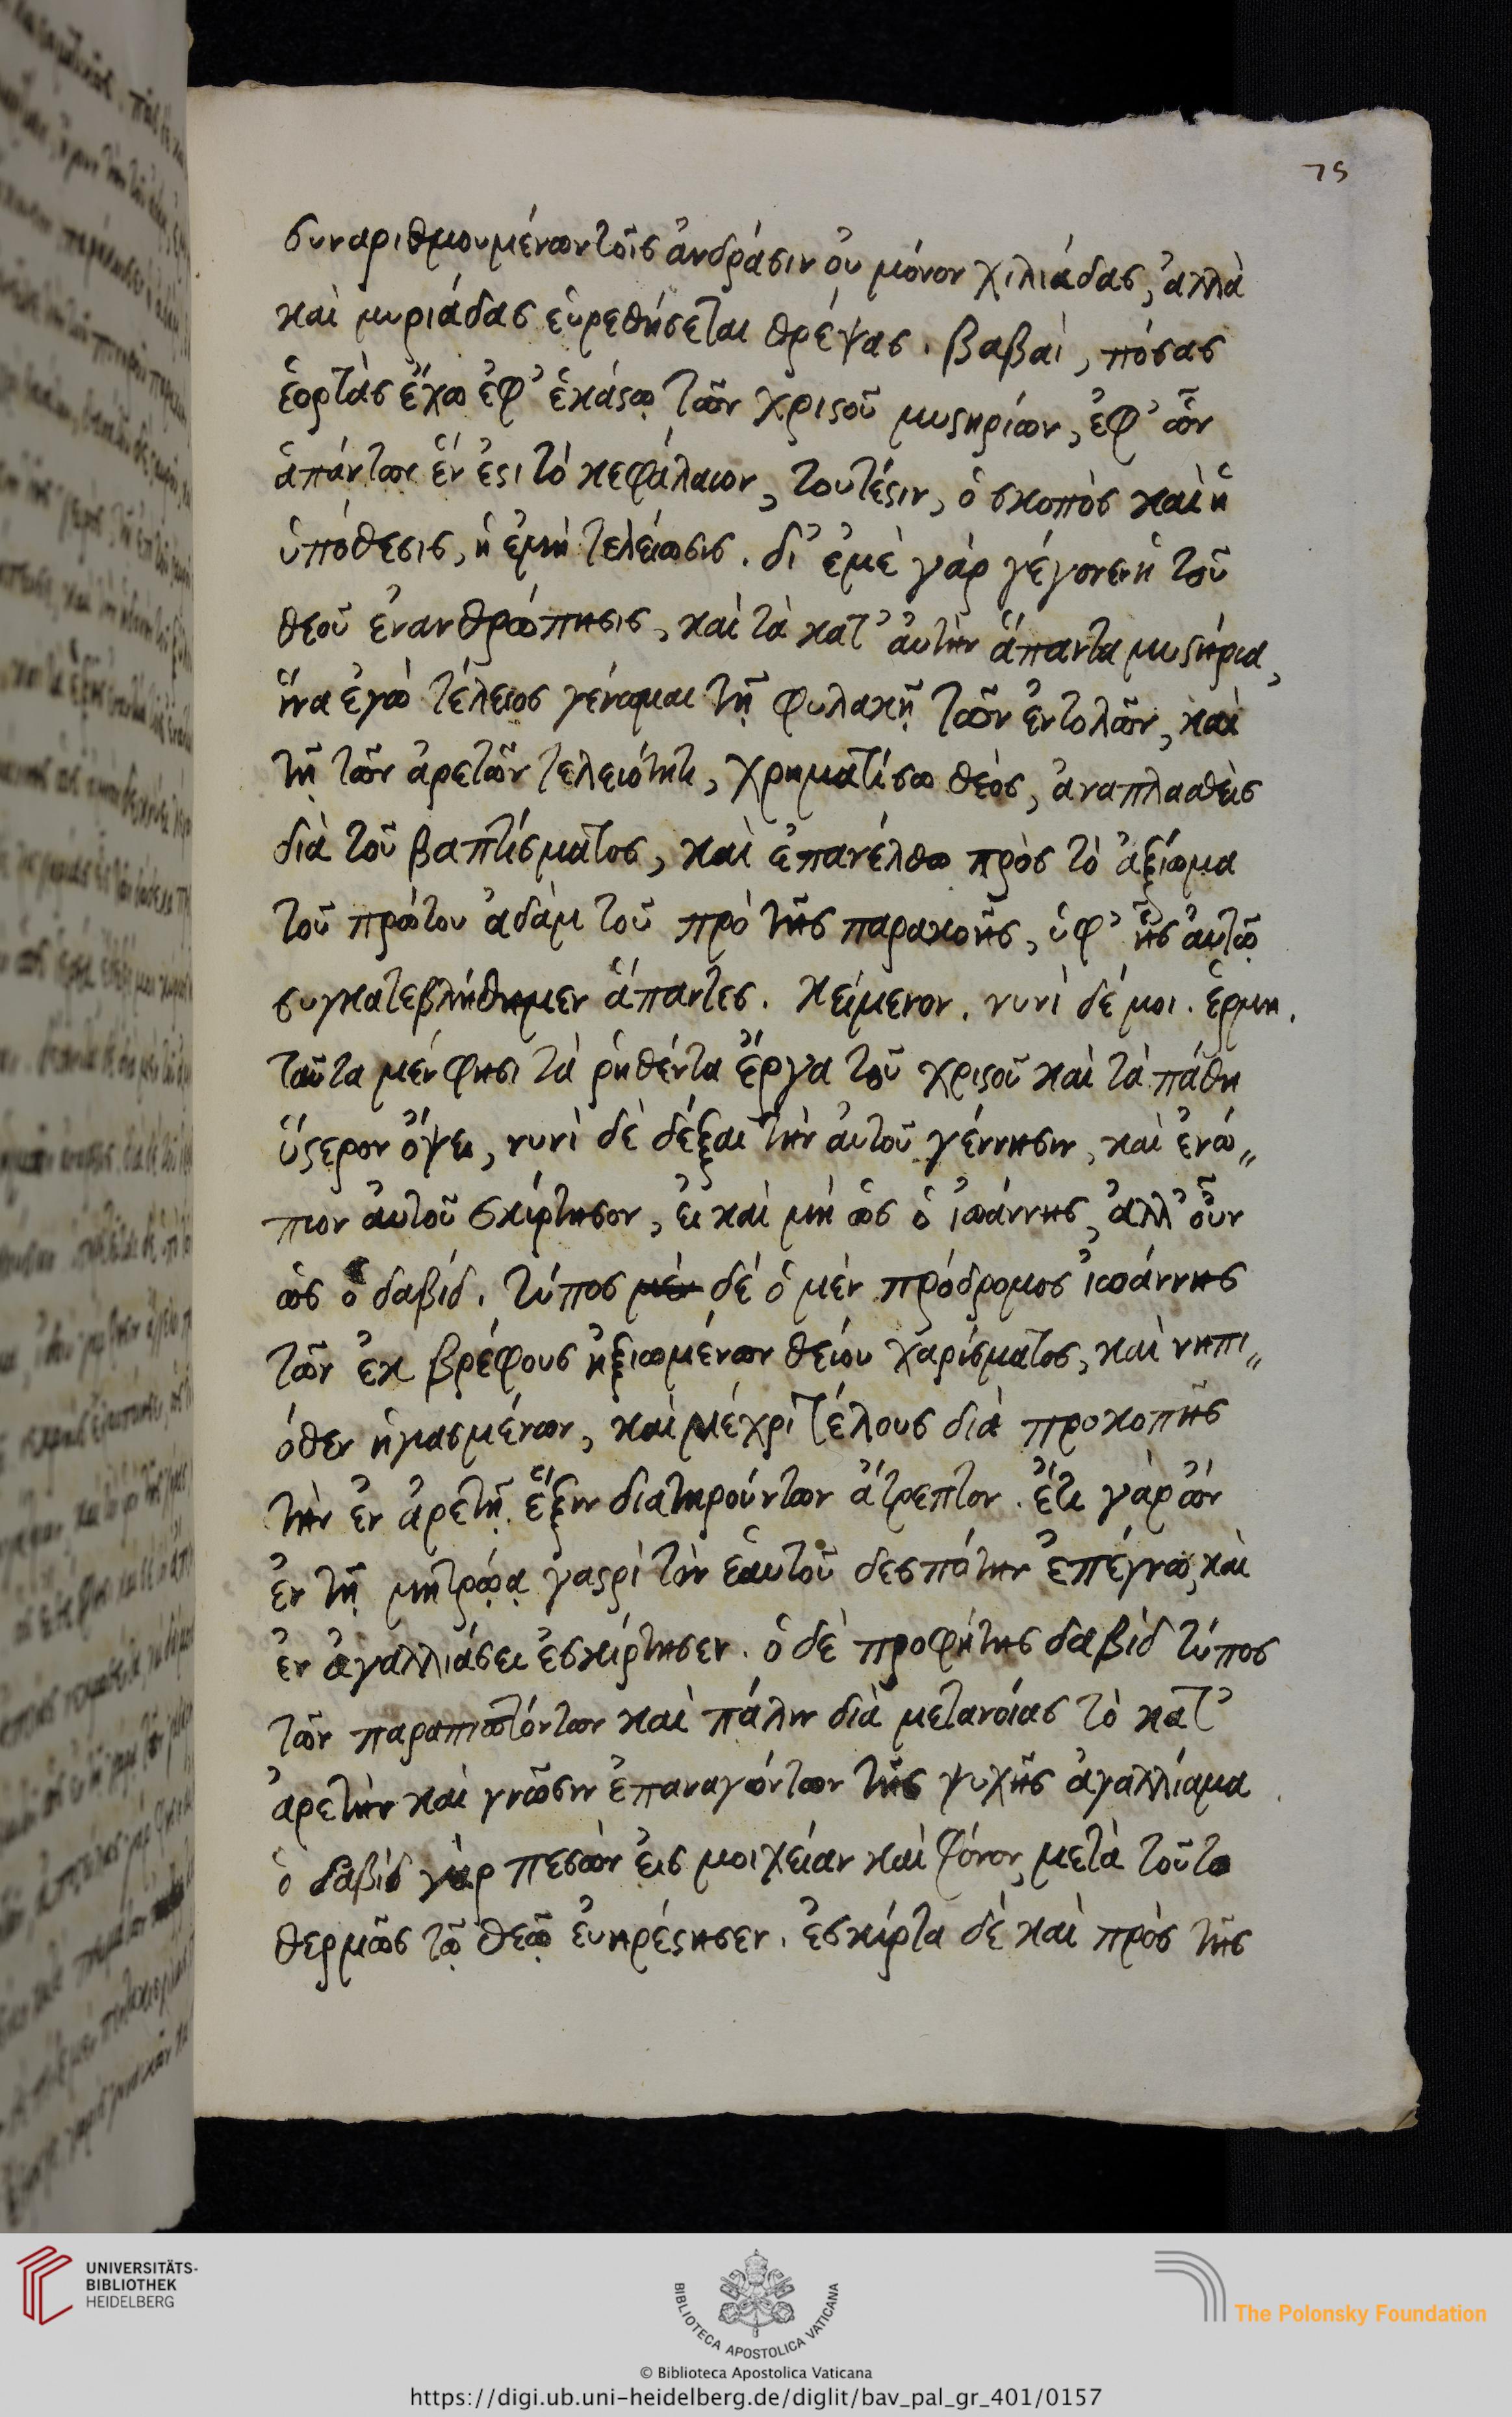 75
συναριθμουμένων τοῖς ἀνδράσιν οὐ μόνον χιλιάδας, ἀλλὰ
καὶ μυριάδας εὑρεθήσεται θρέψας. βαβαὶ, πόσας
ἑορτὰς ἔχω ἐφ᾽ ἑκάϛῳ τῶν χριϛοῦ μυϛηρίων, ἐφ᾽ ὧν
ἁπάντων ἕν ἐϛι τὸ κεφάλαιον, τουτέϛιν, ὁ σκοπὸς καὶ ἡ
ὑπόθεσις, ἡ ἐμὴ τελείωσις. δι᾽ ἐμὲ γὰρ γέγονεν ἡ τοῦ
θεοῦ ἐνανθρώπησις, καὶ τὰ κατ᾽ αὐτὴν ἅπαντα μυϛήρια,
ἵνα ἐγὼ τέλειος γένωμαι τῇ φυλακῇ τῶν ἐντολῶν, καὶ
τῇ τῶν ἀρετῶν τελειότητι, χρηματίσω θεὸς, ἀναπλασθεὶς
διὰ τοῦ βαπτίσματος, καὶ ἐπανέλθω πρὸς τὸ ἀξίωμα
τοῦ πρώτου ἀδὰμ τοῦ πρὸ τῆς παρακοῆς, ὑφ᾽ ἧς αὐτῷ
συγκατεβλήθημεν ἅπαντες. κείμενον. νυνὶ δέ μοι. ἑρμη.
ταῦτα μέν φησι τὰ ῥηθέντα ἔργα τοῦ χριϛοῦ καὶ τὰ πάθη
ὕϛερον ὄψει, νυνὶ δὲ δέξαι τὴν αὐτοῦ γέννησιν, καὶ ἐνώ„
πιον αὐτοῦ σκίρτησον, εἰ καὶ μὴ ὡς ὁ ἰωάννης, ἀλλ᾽ οὖν
ὡς ὁ δαβίδ. τύπος μὲν δέ ὁ μὲν πρόδρομος ἰωάννης
τῶν ἐκ βρέφους ἠξιωμένων θείου χαρίσματος, καὶ νηπι„
όθεν ἡγιασμένων, καὶ μέχρι τέλους διὰ προκοπῆς
τὴν ἐν ἀρετῇ ἕξιν διατηρούντων ἄτρεπτον. ἔτι γὰρ ὢν
ἐν τῇ μητρῴᾳ γαϛρὶ τὸν ἑαυτοῦ δεσπότην ἐπέγνω, καὶ
ἐν ἀγαλλιάσει ἐσκίρτησεν. ὁ δὲ προφήτης δαβὶδ τύπος
τῶν παραπιπτόντων καὶ πάλιν διὰ μετανοίας τὸ κατ᾽
ἀρετὴν καὶ γνῶσιν ἐπαναγόντων τῆς ψυχῆς ἀγαλλίαμα.
ὁ δαβὶδ γὰρ πεσὼν εἰς μοιχείαν καὶ φόνον, μετὰ τοῦτο
θερμῶς τῷ θεῷ εὐηρέϛησεν. ἐσκίρτα δὲ καὶ πρὸς τῆς
UNIVERSITÄTS-
BIBLIOTHEK
HEIDELBERG
BIBLIOTECA APOSTOLICA VATICANA
The Polonsky Foundation
© Biblioteca Apostolica Vaticana
https://digi.ub.uni-heidelberg.de/diglit/bav_pal_gr_401/0157